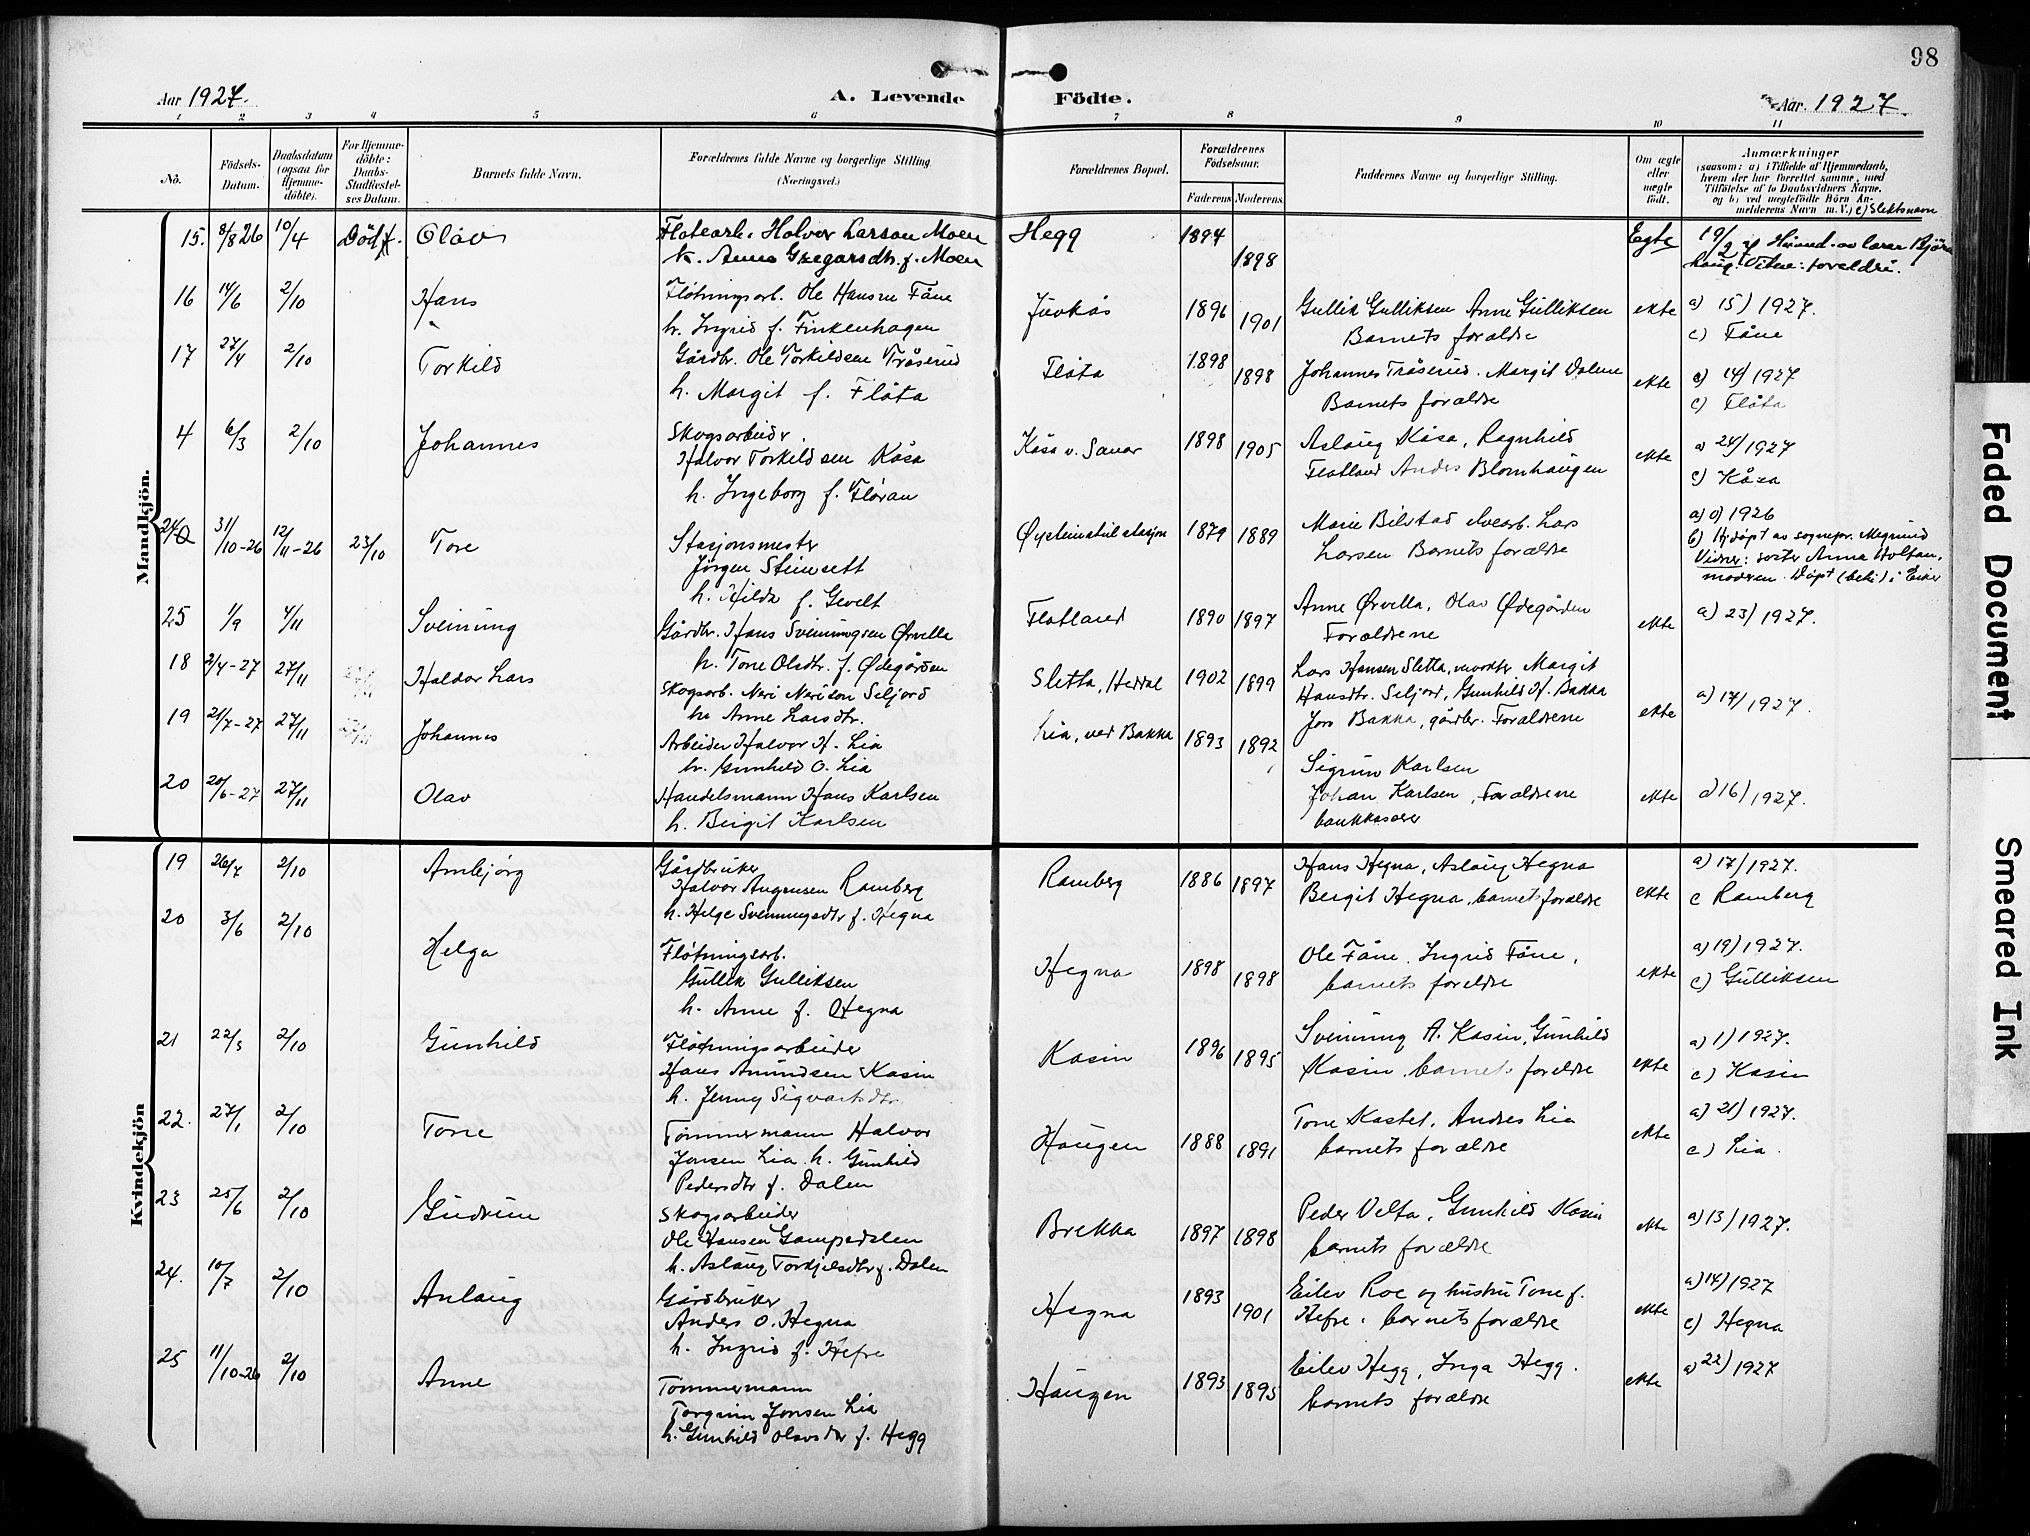 98
Aar 1927.
A. Levende Födte.
Aar. 1927
1 2 3 4 5 6 7 8 9 10 11
No.
Födsels-Datum.
Daabsdatum (ogsaa for Hjemmedöbte).
For Hjemmedöbte: Daabs-Stadfæstelses Datum.
Barnets fulde Navn.
Forældrenes fulde Navne og borgerlige Stilling (Næringsvei.)
Forældrenes Bopæl.
Forældrenes Födselsaar.
Faderens Moderens
Faddernes Navne og borgerlige Stilling.
Om ægte eller uægte födt.
Anmærkninger
(saasom: a) i Tilfælde af Hjemmedaab,
hvem der har forrettet samme, med
Tilföielse af to Daabsvidners Navne.
og b) ved uægtefödte Börn Anmelderens Navn m. V.) c) Slektsnavn
Mandkjön.
15. 8/8 26 10/4 Död. Olav
Halvor Larsen Moen
k. Anne Gregarsdtr. f. Moen
Hegg 1894 1898 Egte
16 14/6 2/10 Hans
Fløtningsarb. Ole Hansen Fåne
h. Ingrid f. Finkenhagen
1896 1901
Gullik Gulliksen Anne Gulliksen
Barnets foreldre
ekte a) 15) 1927.
c) Fåne
17 27/4 2/10 Torkild
Gårdbr. Ole Torkildsen Tråserud
h. Margit f. Flåta
Flåta 1898 1898
Johannes Tråserud. Margit Dalene
Barnets forældre
ekte a) 14) 1927
c) Flåta
4 6/3 2/10 Johannes
Skogsarbeider.
Halvor Torkildsen Kåsa
h. Ingeborg f. Fløran
Kåsa v. Sauar 1898 1905
Aslaug Kåsa, Ragnhild
Flatland Andes Blomhaugen
ekte a) 24) 1927
c) Kåsa
24 31/10-26 12/11-26 23/10 Tore
Stasjonsmester
Jørgen Steinsett
h. Hilda f. Gevelt
stasjon 1879 1889
Marie Bilstad Lars
Larsen Barnets forældre
a) 0) 1926
b) Hj.døpt av sogneprest
Vidner: søster Anna Holtan,
moderen. Døpt i Eiker
25 1/9 4/11 Sveinung
Gårdbr. Hans Sveinungsen Ørvella
h. Tone Olsdtr. f. Ødegården
Flatland 1890 1897
Anne Ørvella, Olav Ødegården
Foreldrene
ekte a) 23) 1927.
18 2/4-27 27/11 Haldor Lars
Skogsarb. Neri Nerison Seljord
h. Anne Larsdtr.
Sletta, Heddal 1902 1899
Lars Hansen Sletta, Margit
Hansdtr. Seljord, Gunhild H. Bakka
ekte a) 17) 1927.
19 21/7-27 27/11 Johannes
Arbeider Halvor H. Lia
h. Gunhild O. Lia
Lia, ved Bakka 1893 1892
Jon Bakka, gårdbr. Foreldrene
20 20/6-27 27/11 Olav
Handelsmann Hans Karlsen
h. Birgit Karlsen
Sigrun Karlsen
Johan Karlsen, Foreldrene
bankkasserer
ekte a) 16) 1927.
Kvindekjön
19 26/7 2/10 Ambjørg
Gårdbruker
Halvor Ramberg
h. Helge Sveinungsdtr f. Hegna
Ramberg 1886 1897
Hans Hegna, Aslaug Hegna
Bergit Hegna, barnets foreldre
ekte a) 17) 1927.
c Ramberg
20 3/6 2/10 Helga
Fløtningsarb.
Gullik Gulliksen
h. Anne f. Hegna
Hegna 1898 1898
Ole Fåne, Ingrid Fåne,
barnets foreldre
ekte a) 19) 1927.
c) Gulliksen
21 22/3 2/10 Gunhild
Fløtningsarbeider
Hans Amundsen Kasin
h. Jenny Sigvartsdtr.
Kasin 1896 1895
Sveinung A. Kasin, Gunhild
Kasin, barnets foreldre
ekte a) 1) 1927.
c) Kasin
22. 27/1 2/10 Tone
Tømmermann Halvor
Jonsen Lia h. Gunhild
Pedersdtr f. Dalen
Haugen 1888 1891
Tone Kastet, Andres Lia
barnets forældre
ekte a) 21) 1927.
c) Lia.
23 25/6 2/10 Gudrun
Skogsarbeider
Ole Hansen Gampedalen
h. Aslaug Torkjelsdtr f. Dalen
Brekka 1897 1898
Peder Velta, Gunhild Kasin
barnets forældre
ekte a) 13) 1927.
24. 10/7 2/10 Anlaug
Gårdbruker
Anders O. Hegna
h. Ingrid f. Hefre
Hegna 1893 1901
Eilev Roe og hustru Tone f.
Hefre. barnets forældre
ekte a) 14) 1927
c) Hegna
25 11/10-26 2/10 Anne
Tømmermann
Torgrim Jonsen Lia
h. Gunhild Olavsdtr f. Hegg
Haugen 1893 1895
Eilev Hegg, Inga Hegg.
barnets forældre
ekte a) 22) 1927
Faded Document
Smeared Ink